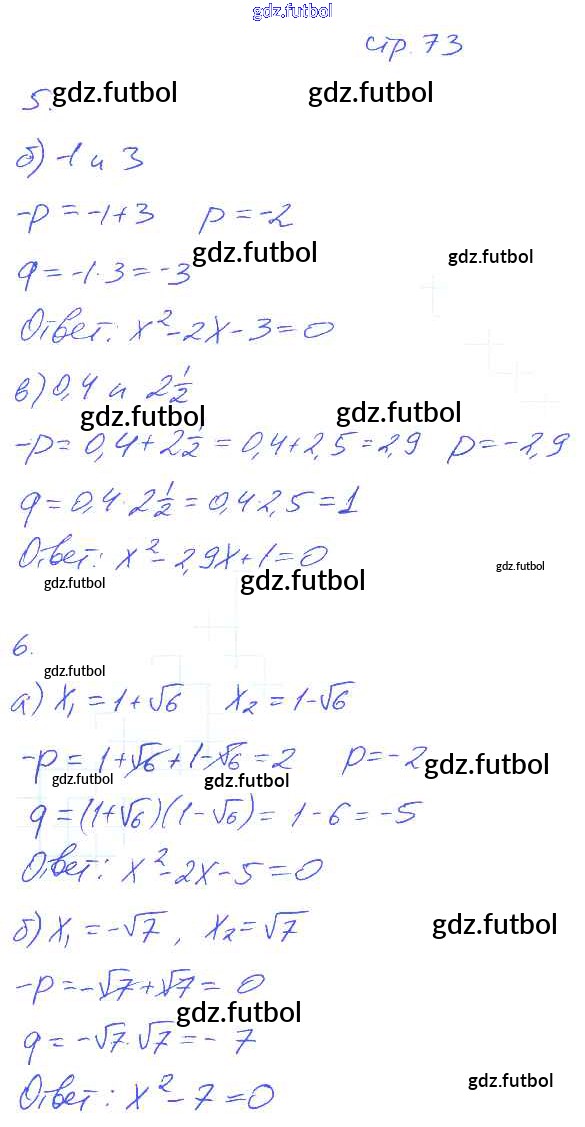 gdz.futbol
стр. 73
5. gdz.futbol gdz.futbol
б) -1 и 3
-p = -1+3 p = -2
gdz.futbol gdz.futbol
q = -1·3 = -3
Ответ: x²-2x-3=0
в) 0,4 и 2 1/2
gdz.futbol gdz.futbol
-p = 0,4+2 1/2 = 0,4+2,5 = 2,9 p = -2,9
q = 0,4·2 1/2 = 0,4·2,5 = 1
Ответ: x²-2,9x+1=0
gdz.futbol gdz.futbol gdz.futbol
6.
gdz.futbol
а) x₁ = 1+√6 x₂ = 1-√6
-p = 1+√6+1-√6 = 2 p = -2 gdz.futbol
gdz.futbol gdz.futbol
q = (1+√6)(1-√6) = 1-6 = -5
Ответ: x²-2x-5=0
б) x₁ = -√7, x₂ = √7 gdz.futbol
-p = -√7+√7 = 0
gdz.futbol
q = -√7·√7 = -7
Ответ: x²-7=0 gdz.futbol